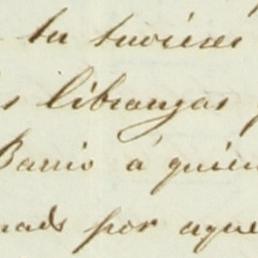 tu tuvieses
s libranzas
Barrio á quien
nads por aque